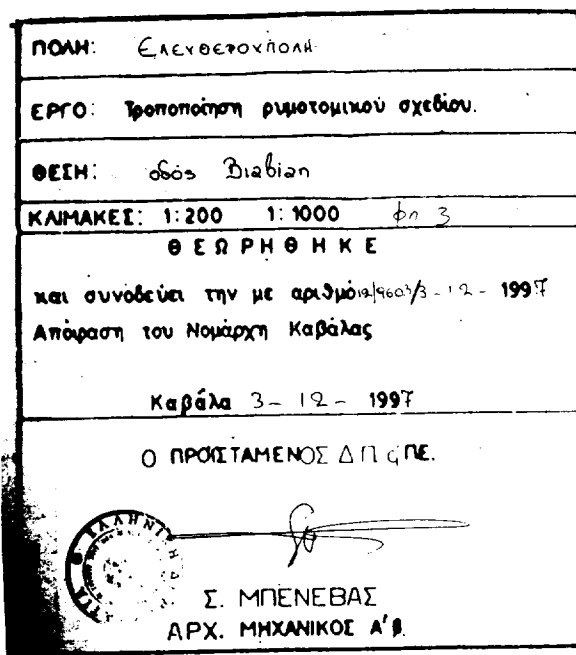 ΠΟΛΗ: Ελευθερούπολη
ΕΡΓΟ: Τροποποίηση ρυμοτομικού σχεδίου.
ΘΕΣΗ: οδός
ΚΛΙΜΑΚΕΣ: 1:200 1:1000 φπ 3
ΘΕΩΡΗΘΗΚΕ
και συνοδεύει την με αριθμό 3-12-1997
Απόφαση του Νομάρχη Καβάλας
Καβάλα 3-12-1997
Ο ΠΡΟΙΣΤΑΜΕΝΟΣ Δ Π ΠΕ.
ΕΛΛΗΝΙ
Σ. ΜΠΕΝΕΒΑΣ
ΑΡΧ. ΜΗΧΑΝΙΚΟΣ Α'β